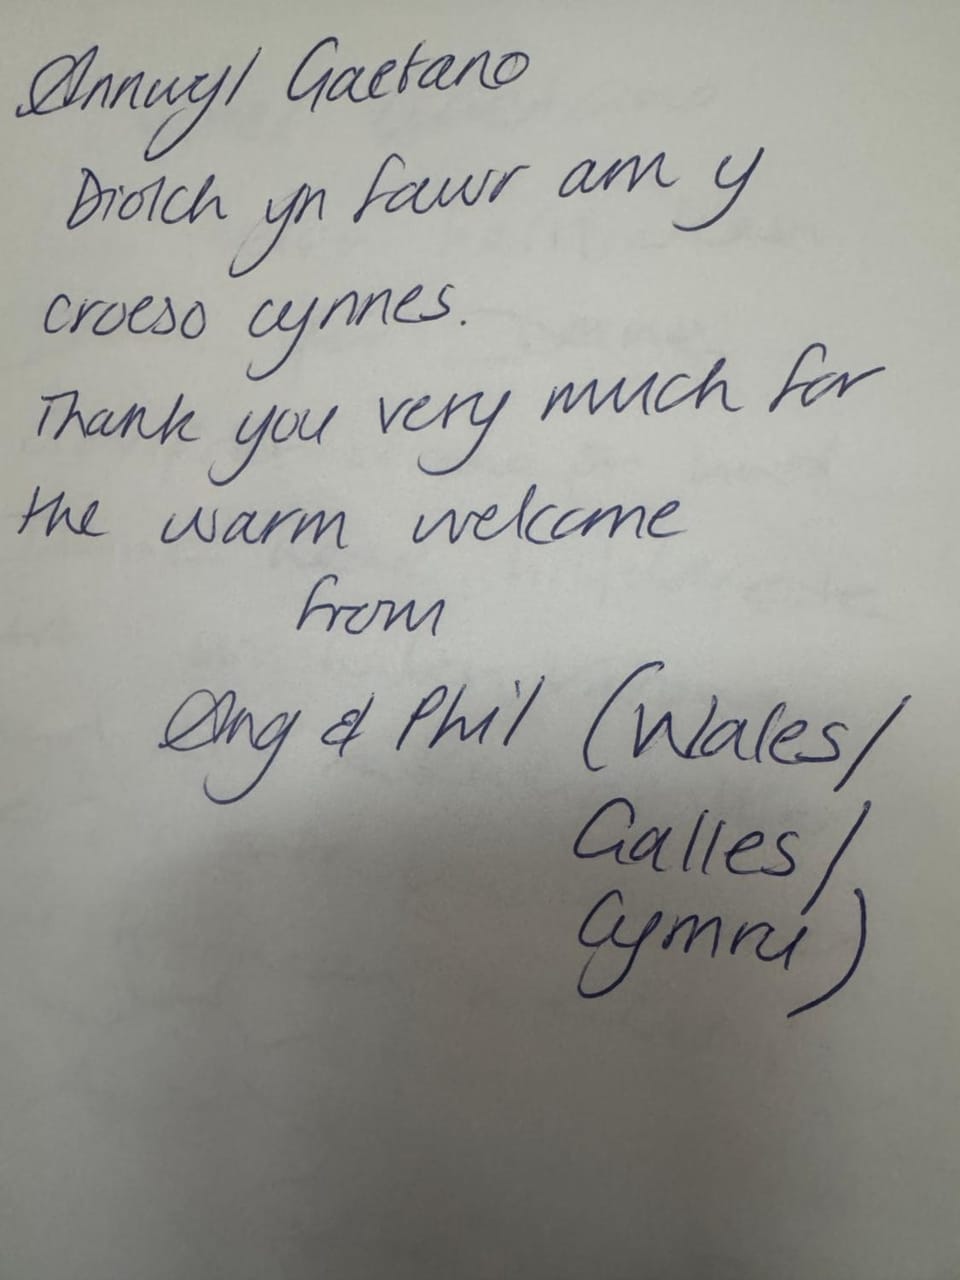 Annwyl Gaetano
Diolch yn fawr am y
croeso cynnes.
Thank you very much for
the warm welcome
from
Ang & Phil (Wales/
Galles/
Cymru)